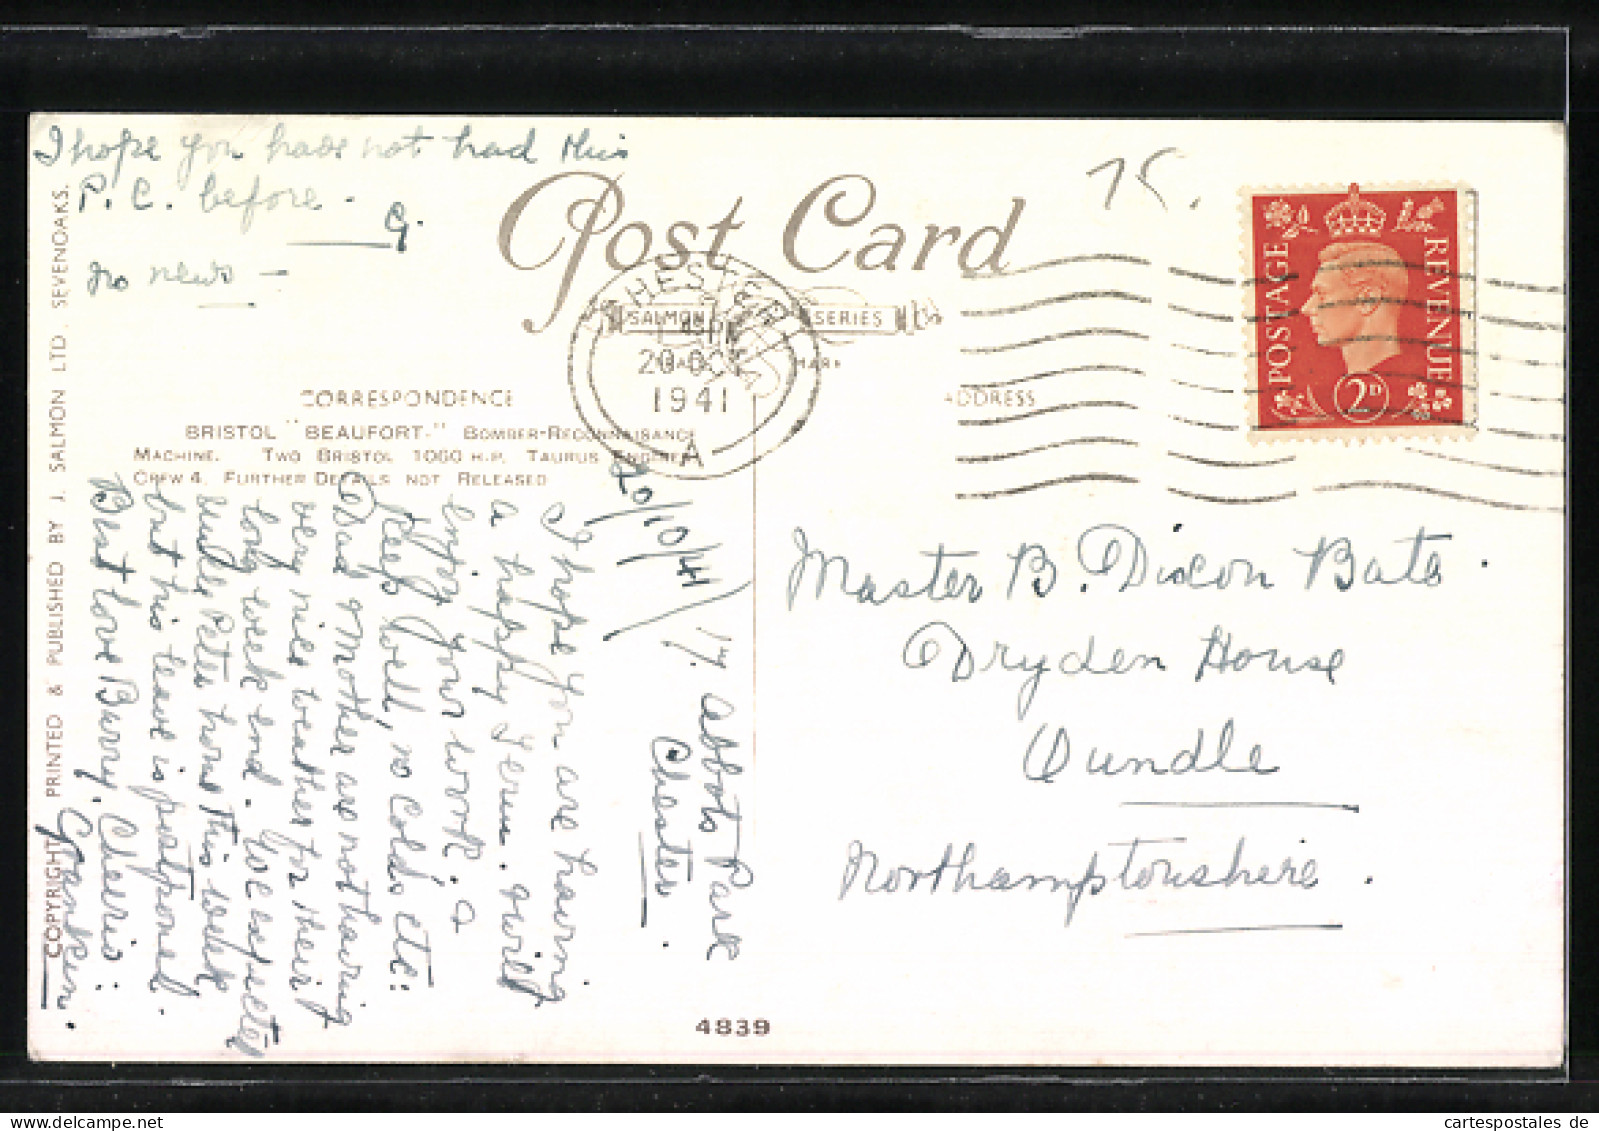 I hope you have not had this
P.C. before.
G.
no news —
75.
Post Card
SALMON SERIES
MARK
CHESTER
20 OC
1941
A
POSTAGE
REVENUE
2D
CORRESPONDENCE
ADDRESS
BRISTOL "BEAUFORT." BOMBER-RECONNAISANCE
MACHINE. TWO BRISTOL 1060 H.P. TAURUS ENGINES
CREW 4. FURTHER DETAILS NOT RELEASED
COPYRIGHT PRINTED & PUBLISHED BY J. SALMON LTD. SEVENOAKS.
20/10/41
17. Abbots Park
Chester.
I hope you are having
a happy Term. &
enjoy your work.
Keep well, no colds etc:
Dad & Mother are not having
very nice weather for their
long week end. We expected
Peter home this week
but his leave is postponed.
Best love Barry. Cheerio:
Grandken.
Master B. Dixon Bate.
Dryden House
Oundle
Northamptonshire.
4839
cartespostales de